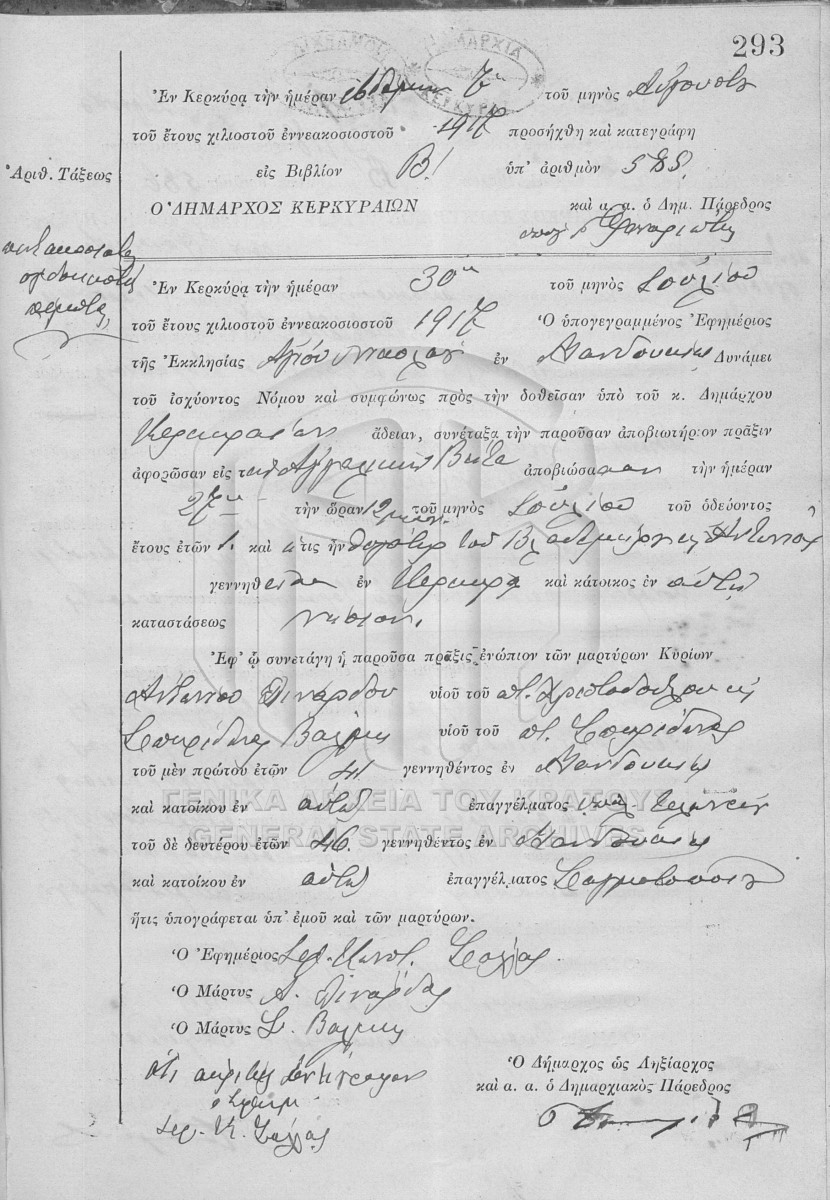 293
Ἐν Κερκύρᾳ τὴν ἡμέραν ἑβδόμην 7ην τοῦ μηνὸς Αὐγούστου
τοῦ ἔτους χιλιοστοῦ ἐννεακοσιοστοῦ 1917 προσήχθη καὶ κατεγράφη
Ἀριθ. Τάξεως
εἰς Βιβλίον Β! ὑπ' ἀριθμὸν 585.
Ο ΔΗΜΑΡΧΟΣ ΚΕΡΚΥΡΑΙΩΝ
καὶ α. α. ὁ Δημ. Πάρεδρος
πεντακοσιοστὴ
ὀγδοηκοστὴ
πέμπτη
Ἐν Κερκύρᾳ τὴν ἡμέραν 30ην τοῦ μηνὸς Ἰουλίου
τοῦ ἔτους χιλιοστοῦ ἐννεακοσιοστοῦ 1917 Ὁ ὑπογεγραμμένος Ἐφημέριος
τῆς Ἐκκλησίας Ἁγίου Νικολάου ἐν Μανδουκίῳ Δυνάμει
τοῦ ἰσχύοντος Νόμου καὶ συμφώνως πρὸς τὴν δοθεῖσαν ὑπὸ τοῦ κ. Δημάρχου
Κερκυραίων ἄδειαν, συνέταξα τὴν παροῦσαν ἀποβιωτήριον πρᾶξιν
ἀφορῶσαν εἰς τὴν Ἀγγελικὴν Βίτα ἀποβιώσασαν τὴν ἡμέραν
27ην τὴν ὥραν 12 τοῦ μηνὸς Ἰουλίου τοῦ ὁδεύοντος
ἔτους ἐτῶν 1. καὶ ἥτις ἦν θυγάτηρ τοῦ Βλαδιμήρου
γεννηθεῖσα ἐν Κερκύρᾳ καὶ κάτοικος ἐν αὐτῇ
καταστάσεως νήπιον.
Ἐφ' ᾧ συνετάγη ἡ παροῦσα πρᾶξις ἐνώπιον τῶν μαρτύρων Κυρίων
Ἀντωνίου Λινάρδου υἱοῦ τοῦ ποτ. Χριστοδούλου καὶ
Σπυρίδωνος Βαλμῆ υἱοῦ τοῦ ποτ. Σπυρίδωνος
τοῦ μὲν πρώτου ἐτῶν 41 γεννηθέντος ἐν Μανδουκίῳ
καὶ κατοίκου ἐν αὐτῷ ἐπαγγέλματος
τοῦ δὲ δευτέρου ἐτῶν 46. γεννηθέντος ἐν Μανδουκίῳ
καὶ κατοίκου ἐν αὐτῷ ἐπαγγέλματος Σαγματοποιοῦ
ἥτις ὑπογράφεται ὑπ' ἐμοῦ καὶ τῶν μαρτύρων.
Ὁ Ἐφημέριος
Ὁ Μάρτυς Α. Λινάρδος
Ὁ Μάρτυς Σ. Βαλμῆς
Ὁ Δήμαρχος ὡς Ληξίαρχος
καὶ α. α. ὁ Δημαρχιακὸς Πάρεδρος
ὅτι ἀκριβὲς ἀντίγραφον
ΓΕΝΙΚΑ ΑΡΧΕΙΑ ΤΟΥ ΚΡΑΤΟΥΣ
GENERAL STATE ARCHIVES